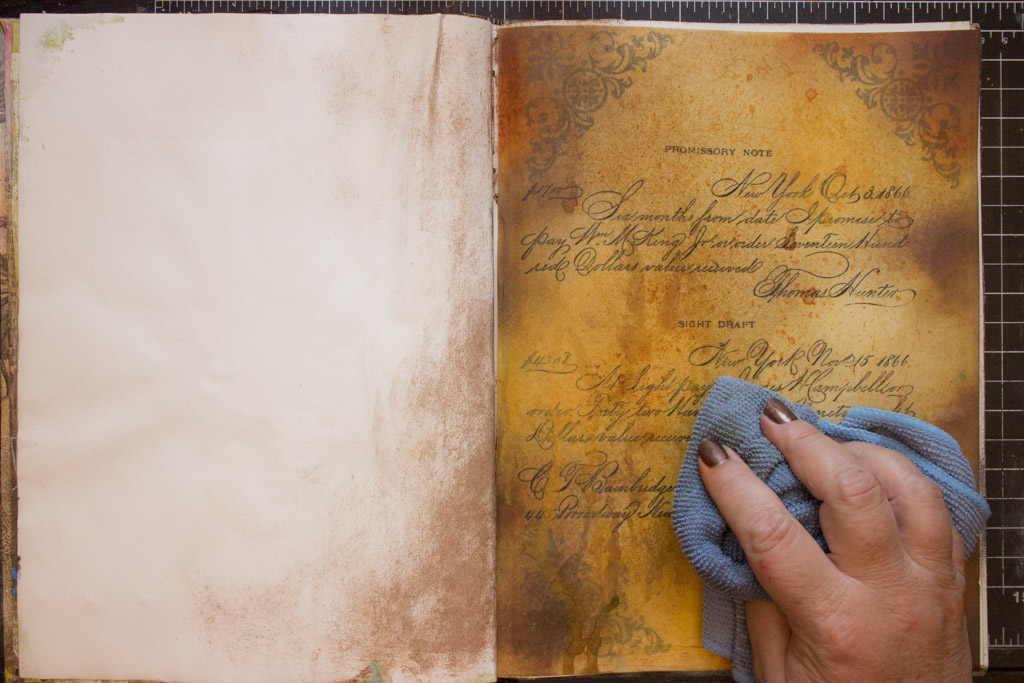 PROMISSORY NOTE
$1700 New York Oct 3, 1866.
Six months from date I promise to
pay Wm. M. King Jr. or order Seventeen Hund
red Dollars value received
Thomas Hunter
SIGHT DRAFT
New York Nov. 15 1866.
At Sight pay Campbell or
order Forty two
Dollars value
C. T. Bainbridge
44 Broadway New